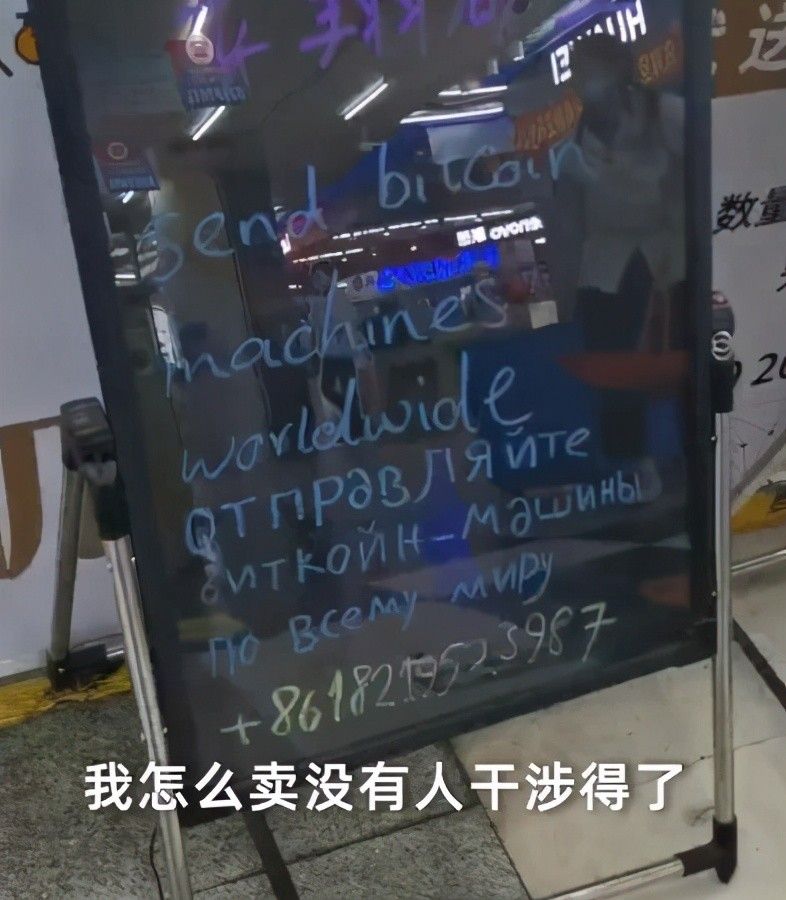 send bitcoin
machines
worldwide
отправляйте
биткойн-машины
по всему миру
+8618219523987
数量
我怎么卖没有人干涉得了